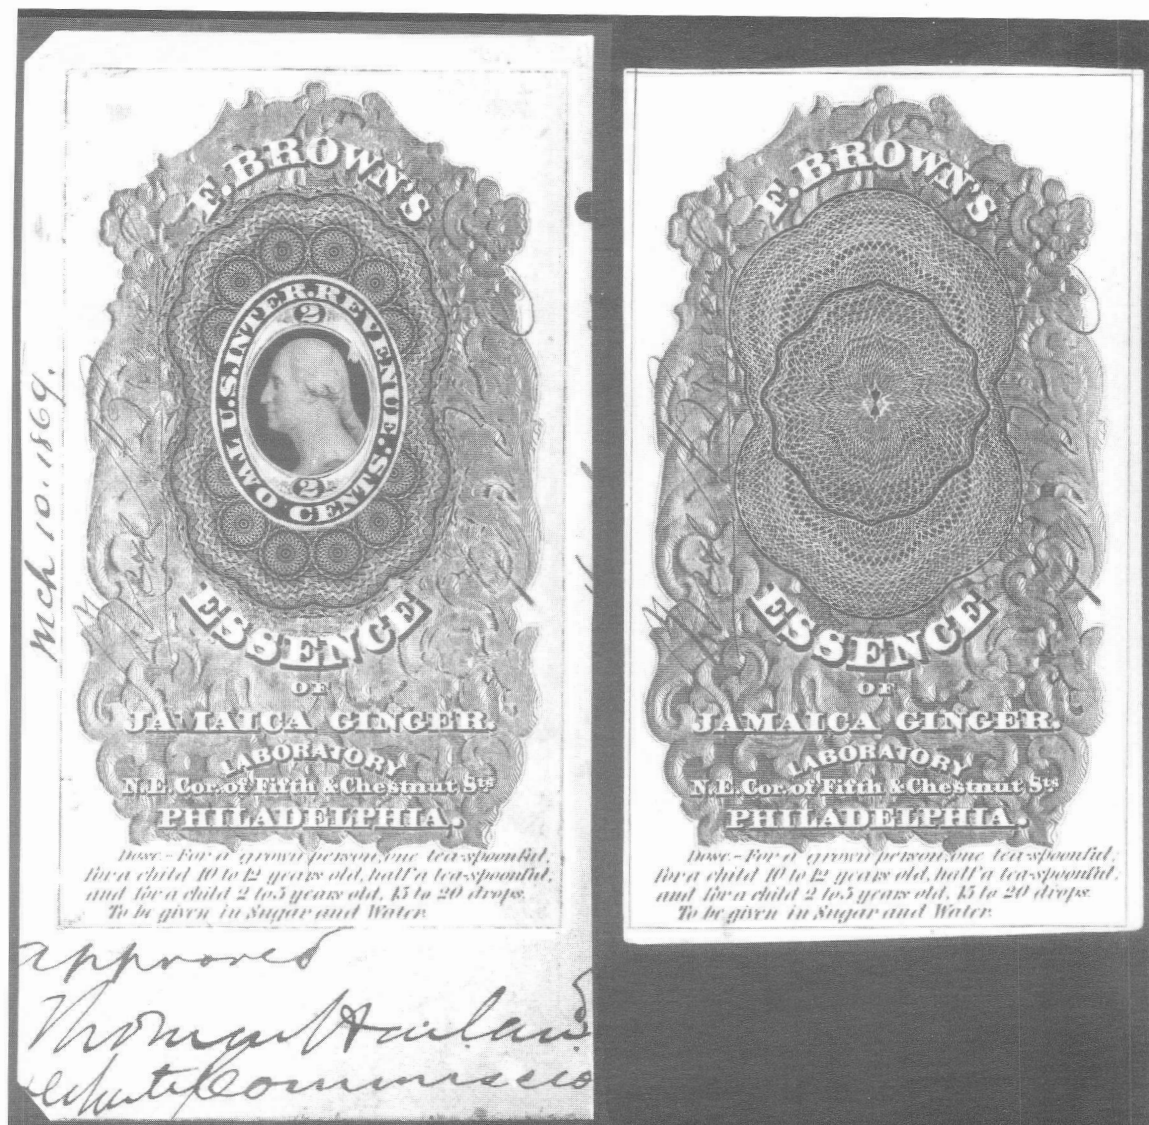 Mch 10. 1869.
F. BROWN'S
U.S. INTER. REVENUE.
2
2
TWO CENTS.
ESSENCE
OF
JAMAICA GINGER.
LABORATORY
N.E. Cor. of Fifth & Chestnut Sts
PHILADELPHIA.
Dose.- For a grown person, one tea-spoonful,
for a child 10 to 12 years old, half a tea-spoonful,
and for a child 2 to 5 years old, 15 to 20 drops.
To be given in Sugar and Water.
approved
Thomas Harland
F. BROWN'S
ESSENCE
OF
JAMAICA GINGER.
LABORATORY
N.E. Cor. of Fifth & Chestnut Sts
PHILADELPHIA.
Dose.- For a grown person, one tea-spoonful,
for a child 10 to 12 years old, half a tea-spoonful,
and for a child 2 to 5 years old, 15 to 20 drops.
To be given in Sugar and Water.